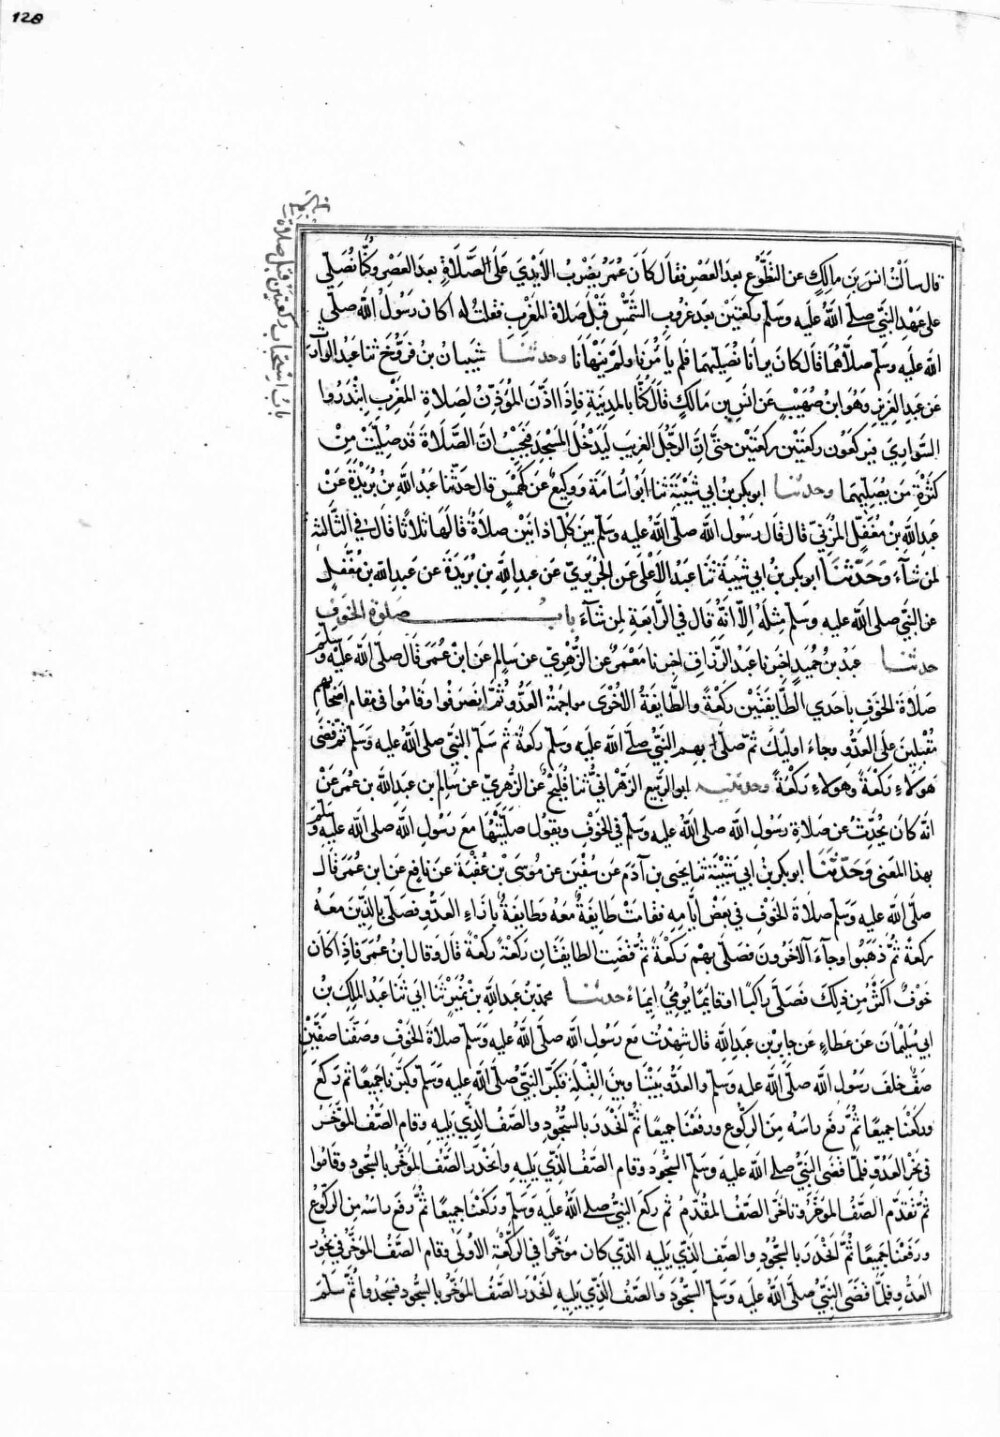 120
باب استحباب ركعتين قبل صلاة
المغرب
قال سألت انس بن مالك عن التطوع بعد العصر فقال كان عمر يضرب الأيدي على الصلاة بعد العصر وكنا نصلي
على عهد النبي صلى الله عليه وسلم ركعتين بعد غروب الشمس قبل صلاة المغرب فقلت له اكان رسول الله صلى
الله عليه وسلم صلاهما قال كان يرانا نصليهما فلم يأمرنا ولم ينهانا وحدثنا شيبان بن فروخ ثنا عبد الوارث
عن عبد العزيز وهو ابن صهيب عن انس بن مالك قال كنا بالمدينة فإذا اذن المؤذن لصلاة المغرب ابتدروا
السواري فيركعون ركعتين ركعتين حتى ان الرجل الغريب ليدخل المسجد فيحسب ان الصلاة قد صليت من
كثرة من يصليهما وحدثنا ابو بكر بن ابي شيبة ثنا ابو اسامة ووكيع عن كهمس قال حدثنا عبد الله بن بريدة عن
عبد الله بن مغفل المزني قال قال رسول الله صلى الله عليه وسلم بين كل اذانين صلاة قالها ثلاثا قال في الثالثة
لمن شاء وحدثنا ابو بكر بن ابي شيبة ثنا عبد الاعلى عن الجريري عن عبد الله بن بريدة عن عبد الله بن مغفل
عن النبي صلى الله عليه وسلم مثله الا انه قال في الرابعة لمن شاء باب صلوة الخوف
حدثنا عبد بن حميد اخبرنا عبد الرزاق اخبرنا معمر عن الزهري عن سالم عن ابن عمر قال صلى الله عليه وسلم
صلاة الخوف باحدي الطايفتين ركعة والطايفة الاخرى مواجهة العدو ثم انصرفوا وقاموا في مقام اصحابهم
مقبلين على العدو وجاء اوليك ثم صلى بهم النبي صلى الله عليه وسلم ركعة ثم سلم النبي صلى الله عليه وسلم ثم قضى
هولاء ركعة وهولاء ركعة وحدثنيه ابو الربيع الزهراني ثنا فليح عن الزهري عن سالم بن عبد الله بن عمر عن
انه كان يحدث عن صلاة رسول الله صلى الله عليه وسلم في الخوف ويقول صليتها مع رسول الله صلى الله عليه وسلم
بهذا المعنى وحدثنا ابو بكر بن ابي شيبة ثنا يحيى بن آدم عن سفين عن موسى بن عقبة عن نافع عن ابن عمر قال
صلى الله عليه وسلم صلاة الخوف في بعض ايامه فقامت طايفة معه وطايفة بازاء العدو فصلى بالذين معه
ركعة ثم ذهبوا وجاء الآخرون فصلى بهم ركعة ثم قضت الطايفتان ركعة ركعة قال وقال ابن عمر فاذا كان
خوف اكثر من ذلك فصلى راكبا او قايما يومي ايماء حدثنا محمد بن عبد الله بن نمير ثنا ابي ثنا عبد الملك بن
ابي سليمان عن عطاء عن جابر بن عبد الله قال شهدت مع رسول الله صلى الله عليه وسلم صلاة الخوف وصفنا صفين
صف خلف رسول الله صلى الله عليه وسلم والعدو بيننا وبين القبلة فكبر النبي صلى الله عليه وسلم وكبرنا جميعا ثم ركع
وركعنا جميعا ثم رفع راسه من الركوع ورفعنا جميعا ثم انحدر بالسجود والصف الذي يليه وقام الصف المؤخر
في نحر العدو فلما قضى النبي صلى الله عليه وسلم السجود وقام الصف الذي يليه وانحدر الصف المؤخر بالسجود وقاموا
ثم تقدم الصف المؤخر وتاخر الصف المقدم ثم ركع النبي صلى الله عليه وسلم وركعنا جميعا ثم رفع راسه من الركوع
ورفعنا جميعا ثم انحدر بالسجود والصف الذي يليه الذي كان مؤخرا في الركعة الاولى وقام الصف المؤخر في نحور
العدو فلما قضى النبي صلى الله عليه وسلم السجود والصف الذي يليه انحدر الصف المؤخر بالسجود فسجدوا ثم سلم